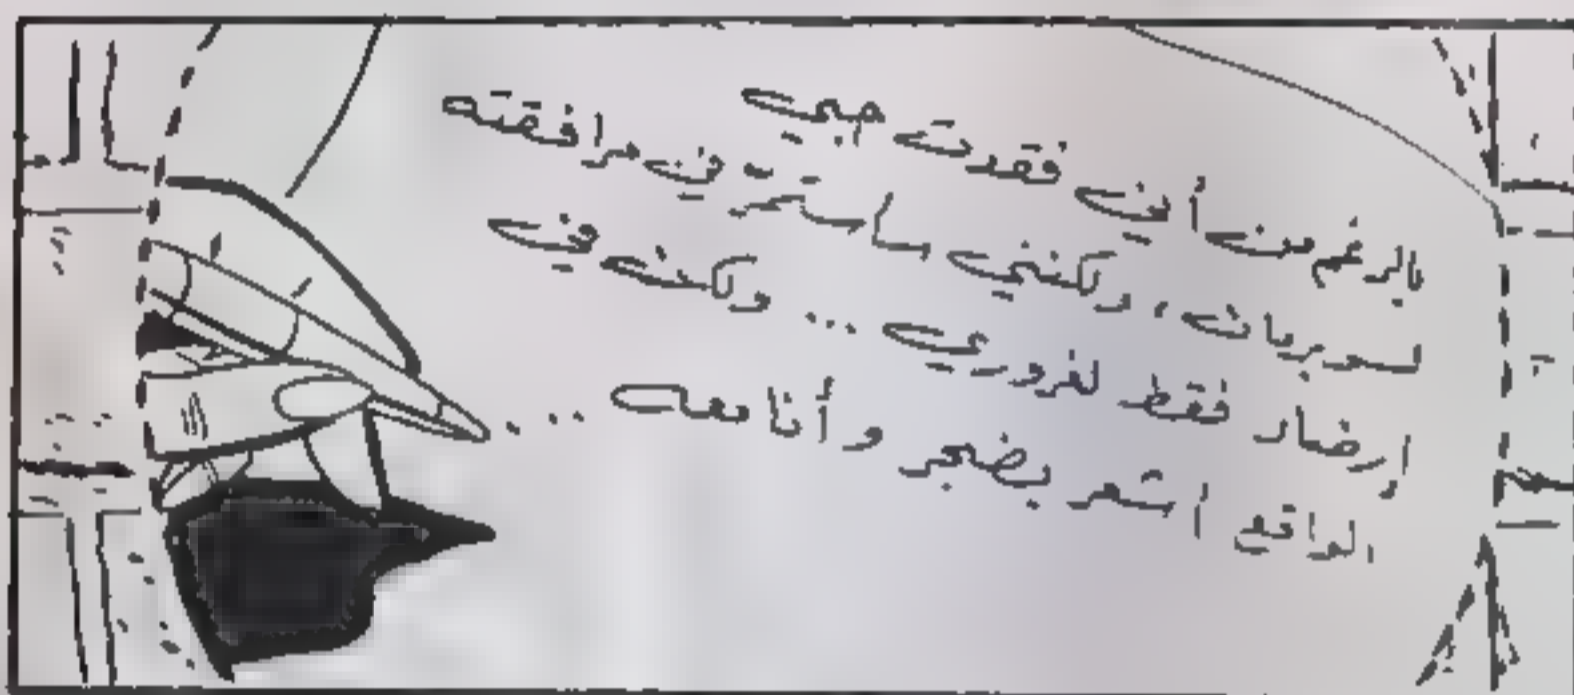 بالرغم من أني فقدت حبي
لسوبرمان، ولكنني سأستمرّ في مرافقته
إرضاء فقط لغروري ... ولكن في
الواقع اشعر بضجر وأنا معه ...